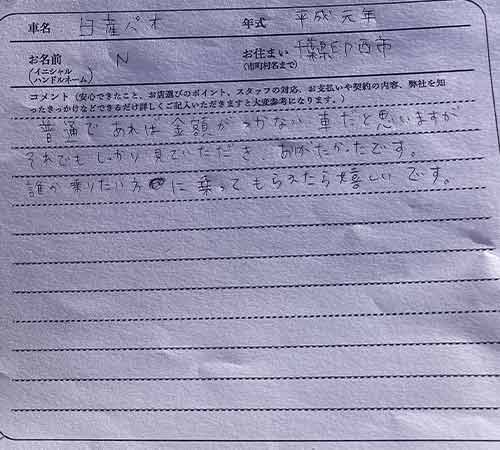 車名 日産パオ 年式 平成元年
お名前 N お住まい 千葉県印西市
(イニシャル (市町村名まで)
ハンドルネーム)
コメント(安心できたこと、お店選びのポイント、スタッフの対応、お支払いや契約の内容、弊社を知
ったきっかけなどできるだけ詳しくご記入いただきますと大変参考になります。)
普通であれば金額がつかない車だと思いますが
それでもしっかり見ていただき、ありがたかったです。
誰か乗りたい方に乗ってもらえたら嬉しいです。